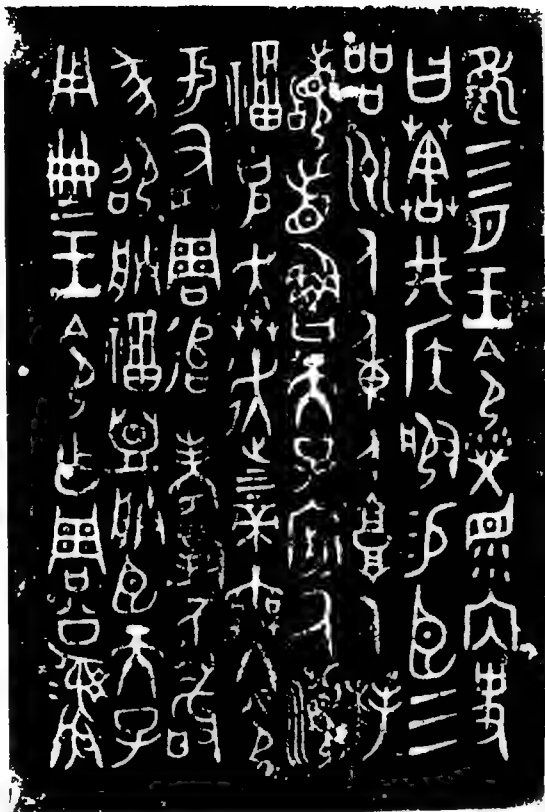 隹三月王令𤇾眔內史
曰𦯧井侯服易臣三
品州人重人𩫖人拜
𩒨首魯天子𢓊厥瀕
福克奔走上下帝無冬令
于有周追考對不敢
㒸卲朕福盟朕臣天子
用典王令乍周公彝